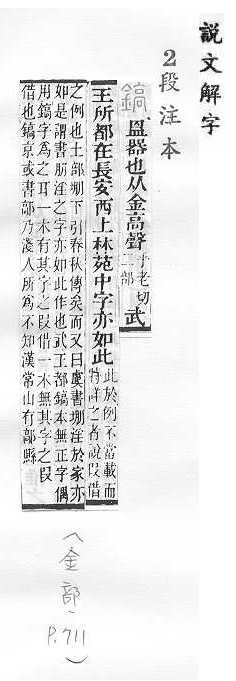 說文解字
2段注本
鎬 𥁕器也从金高聲乎老切二部武
王所都在長安西上林苑中字亦如此此於例不當載而特詳之者說叚借
之例也土部堋下引春秋傳矣而又曰虞書堋淫於家亦
如是謂書朋淫之字亦如此作也武王都鎬本無正字偶
用鎬字爲之耳一本有其字之叚借一本無其字之叚
借也鎬京或書鄗乃淺人所爲不知漢常山有鄗縣
(金部,P.711)